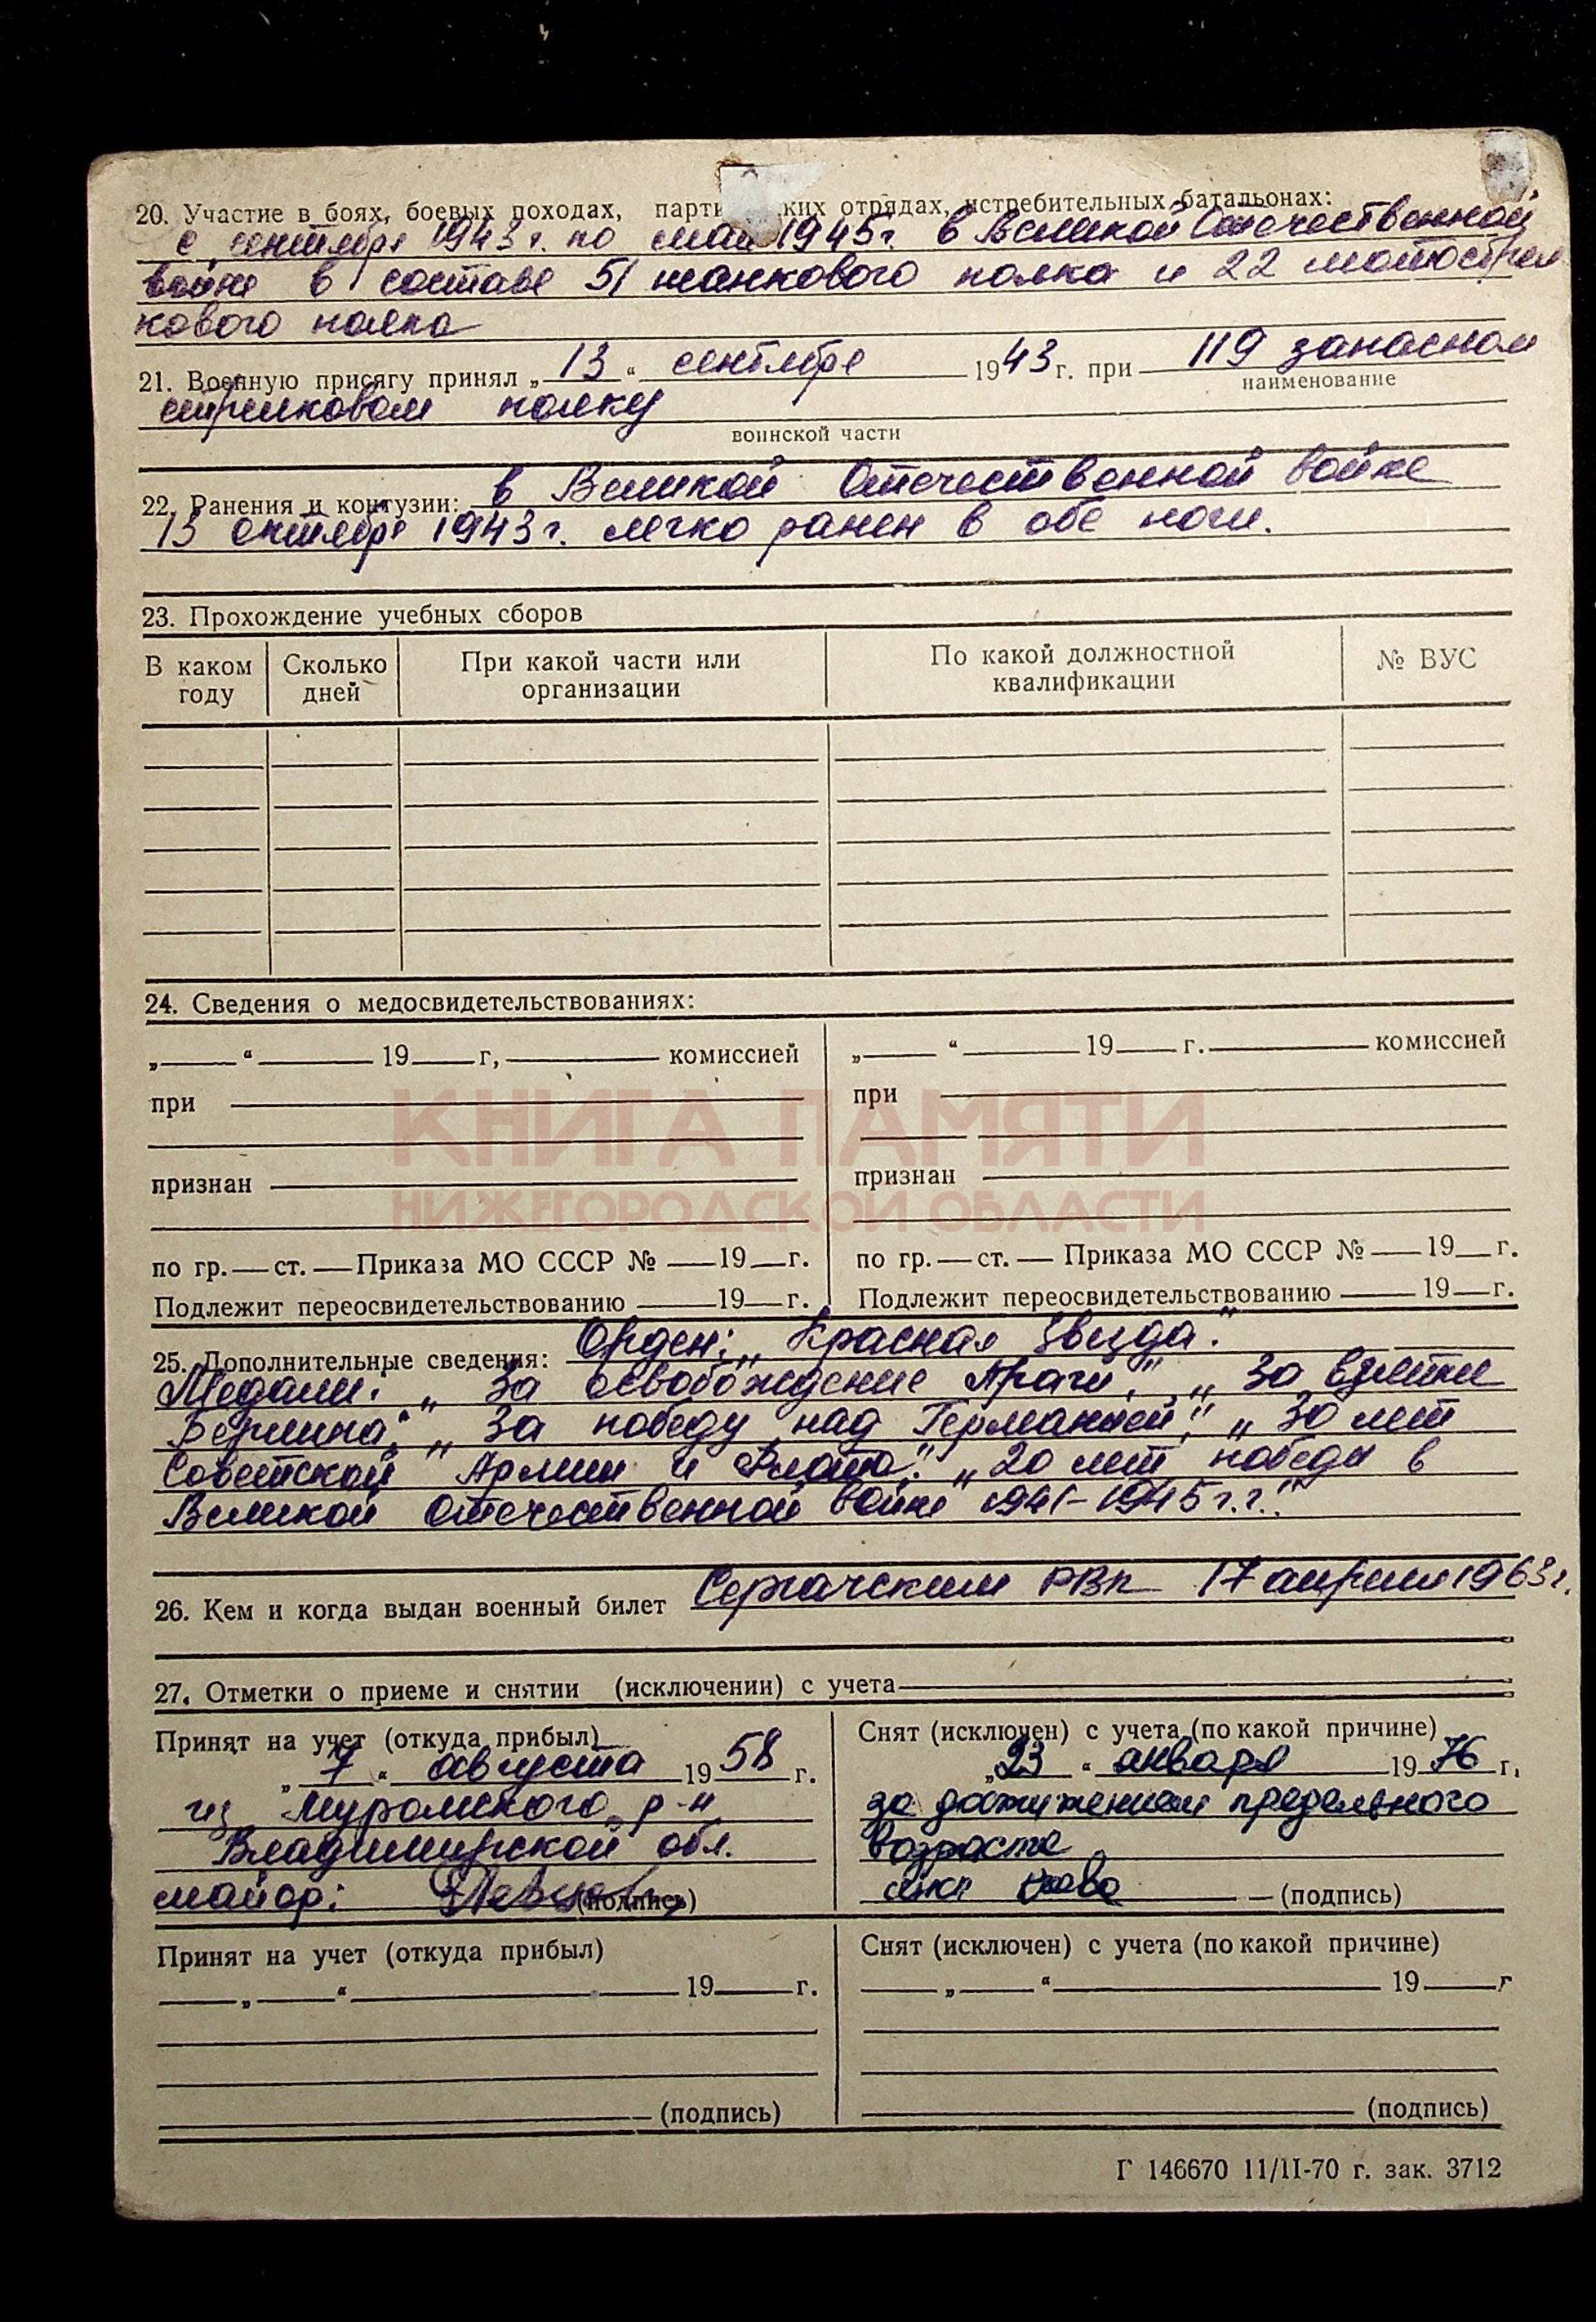 20. Участие в боях, боевых походах, парти ких отрядах, истребительных батальонах:
с сентября 1943 г. по май 1945 г. в Великой Отечественной
войне в составе 51 танкового полка и 22 мотострел
кового полка
21. Военную присягу принял „ 13 “ сентября 1943 г. при 119 запасном
наименование
стрелковом полку
воинской части
22. Ранения и контузии: в Великой Отечественной войне
13 октября 1943 г. легко ранен в обе ноги.
23. Прохождение учебных сборов
В каком году Сколько дней При какой части или организации По какой должностной квалификации № ВУС
24. Сведения о медосвидетельствованиях:
„ “ 19 г, комиссией „ “ 19 г. комиссией
при при
КНИГА ПАМЯТИ
признан признан
НИЖЕГОРОДСКОЙ ОБЛАСТИ
по гр. — ст. — Приказа МО СССР № — 19 — г. по гр. — ст. — Приказа МО СССР № — 19 — г.
Подлежит переосвидетельствованию — 19 — г. Подлежит переосвидетельствованию — 19 — г.
25. Дополнительные сведения: Орден: „Красная Звезда“.
Медали: „За освобождение Праги“, „За взятие
Берлина“, „За победу над Германией“, „30 лет
Советской Армии и Флота“. „20 лет победы в
Великой Отечественной войне 1941–1945 г.г.“
26. Кем и когда выдан военный билет Сергачским РВК 17 апреля 1963 г.
27. Отметки о приеме и снятии (исключении) с учета
Принят на учет (откуда прибыл) Снят (исключен) с учета (по какой причине)
„ 7 “ августа 1958 г. „ 23 “ января 1976 г.
из Муромского р-н за достижением предельного
Владимирской обл. возраста
майор: (подпись) (подпись)
Принят на учет (откуда прибыл) Снят (исключен) с учета (по какой причине)
„ “ 19 г. „ “ 19 г
(подпись) (подпись)
Г 146670 11/II-70 г. зак. 3712